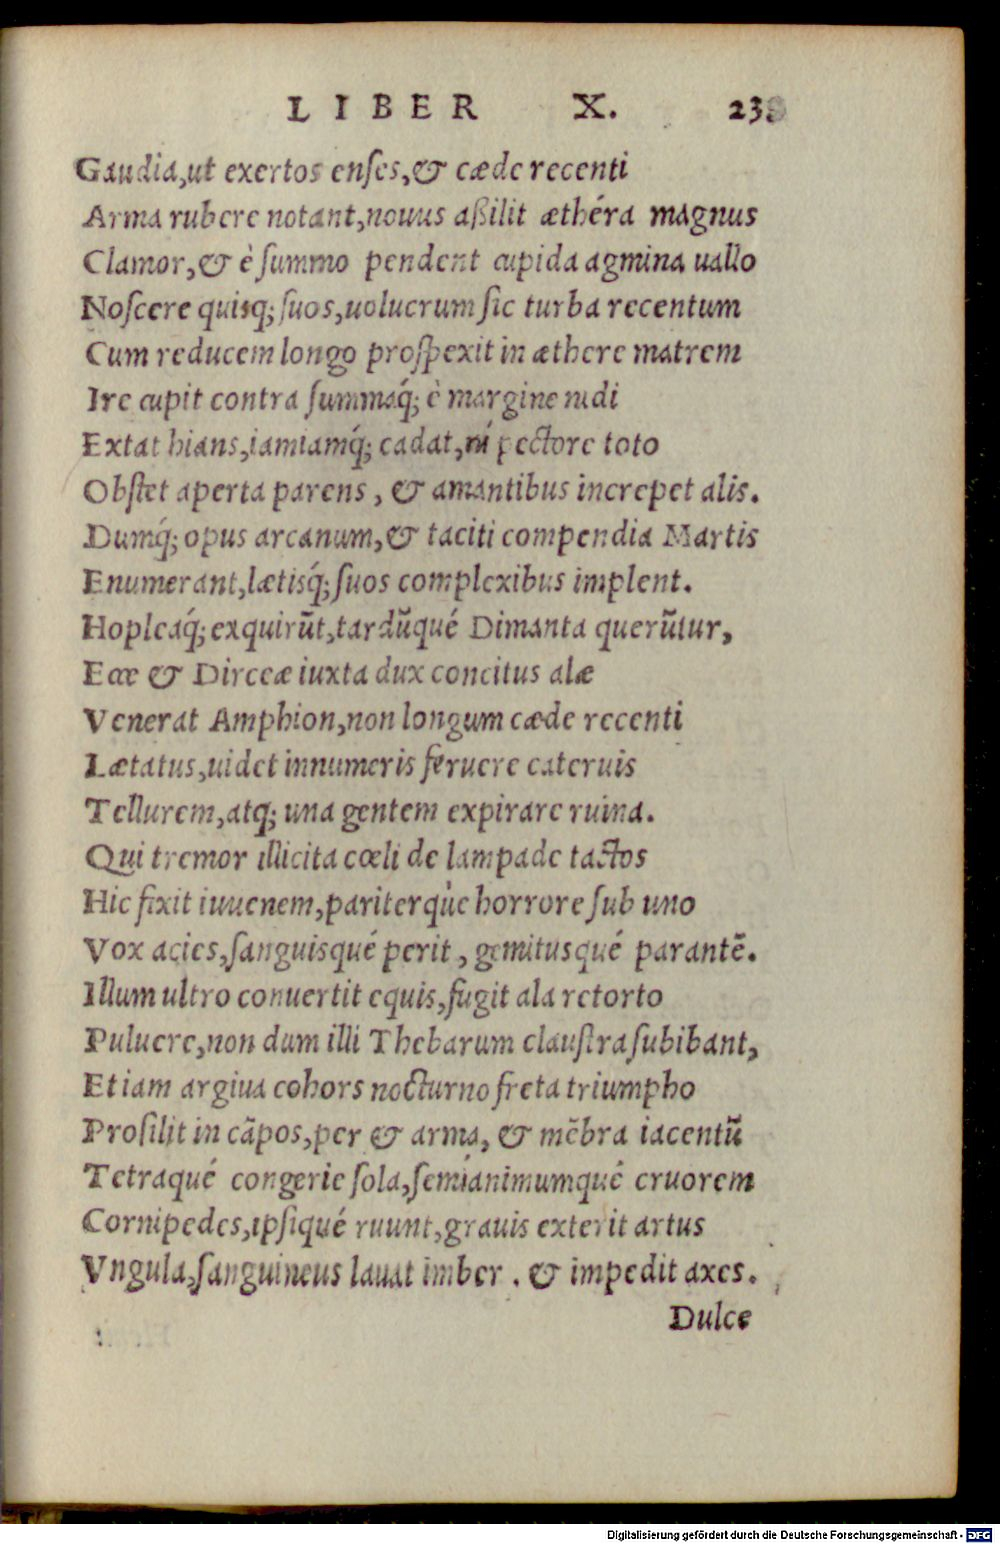 LIBER X. 239
Gaudia,ut exertos enſes,& cæde recenti
Arma rubere notant,nouus aßilit æthéra magnus
Clamor,& è ſummo pendent cupida agmina uallo
Noſcere quisq; ſuos,uolucrum ſic turba recentum
Cum reducem longo proſpexit in æthere matrem
Ire cupit contra ſummaq́; è margine nidi
Extat hians,iamiamq́; cadat,ni pectore toto
Obſtet aperta parens , & amantibus increpet alis.
Dumq́; opus arcanum,& taciti compendia Martis
Enumerant,lætisq́; ſuos complexibus implent.
Hopleaq́; exquirũt,tardũqué Dimanta querũtur,
Ecce & Dirceæ iuxta dux concitus alæ
Venerat Amphion,non longum cæde recenti
Lætatus,uidet innumeris feruere cateruis
Tellurem,atq; una gentem expirare ruina.
Qui tremor illicita cœli de lampade tactos
Hic fixit iuuenem,pariterq̀ue horrore ſub uno
Vox acies,ſanguisqué perit , gemitusqué parantẽ.
Illum ultro conuertit equis,fugit ala retorto
Puluere,non dum illi Thebarum clauſtra ſubibant,
Etiam argiua cohors nocturno freta triumpho
Proſilit in cãpos,per & arma, & mẽbra iacentũ
Tetraqué congerie ſola,ſemianimumqué cruorem
Cornipedes,ipſiqué ruunt,grauis exterit artus
Vngula,ſanguineus lauat imber . & impedit axes.
Dulce
Digitalisierung gefördert durch die Deutsche Forschungsgemeinschaft - DFG